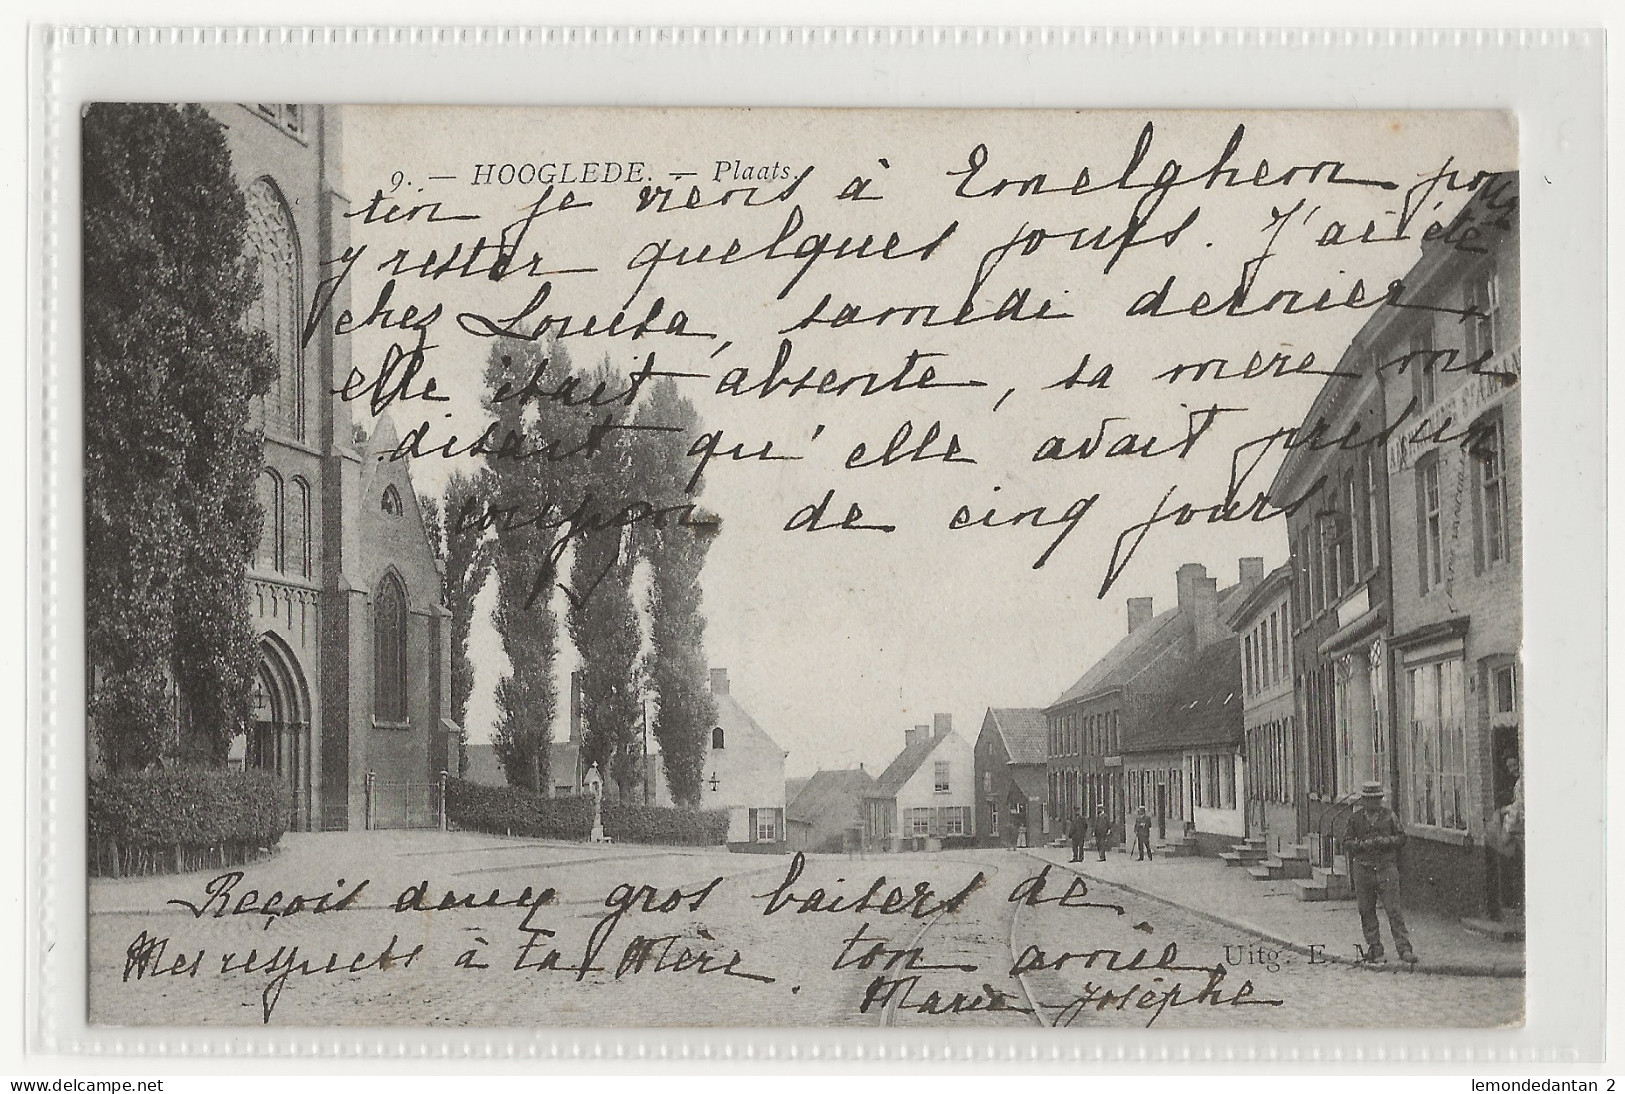 9. — HOOGLEDE. — Plaats.
tin je viens à Emelghem pour
y rester quelques jours. J'ai été
chez Louisa, samedi dernier,
elle était absente, sa mère me
disait qu'elle avait pris un
coupon de cinq jours.
Reçois deux gros baisers de
ton amie
Marie Josèphe
Mes respects à ta Mère.
Uitg. E. M.
www.delcampe.net
lemondedantan 2